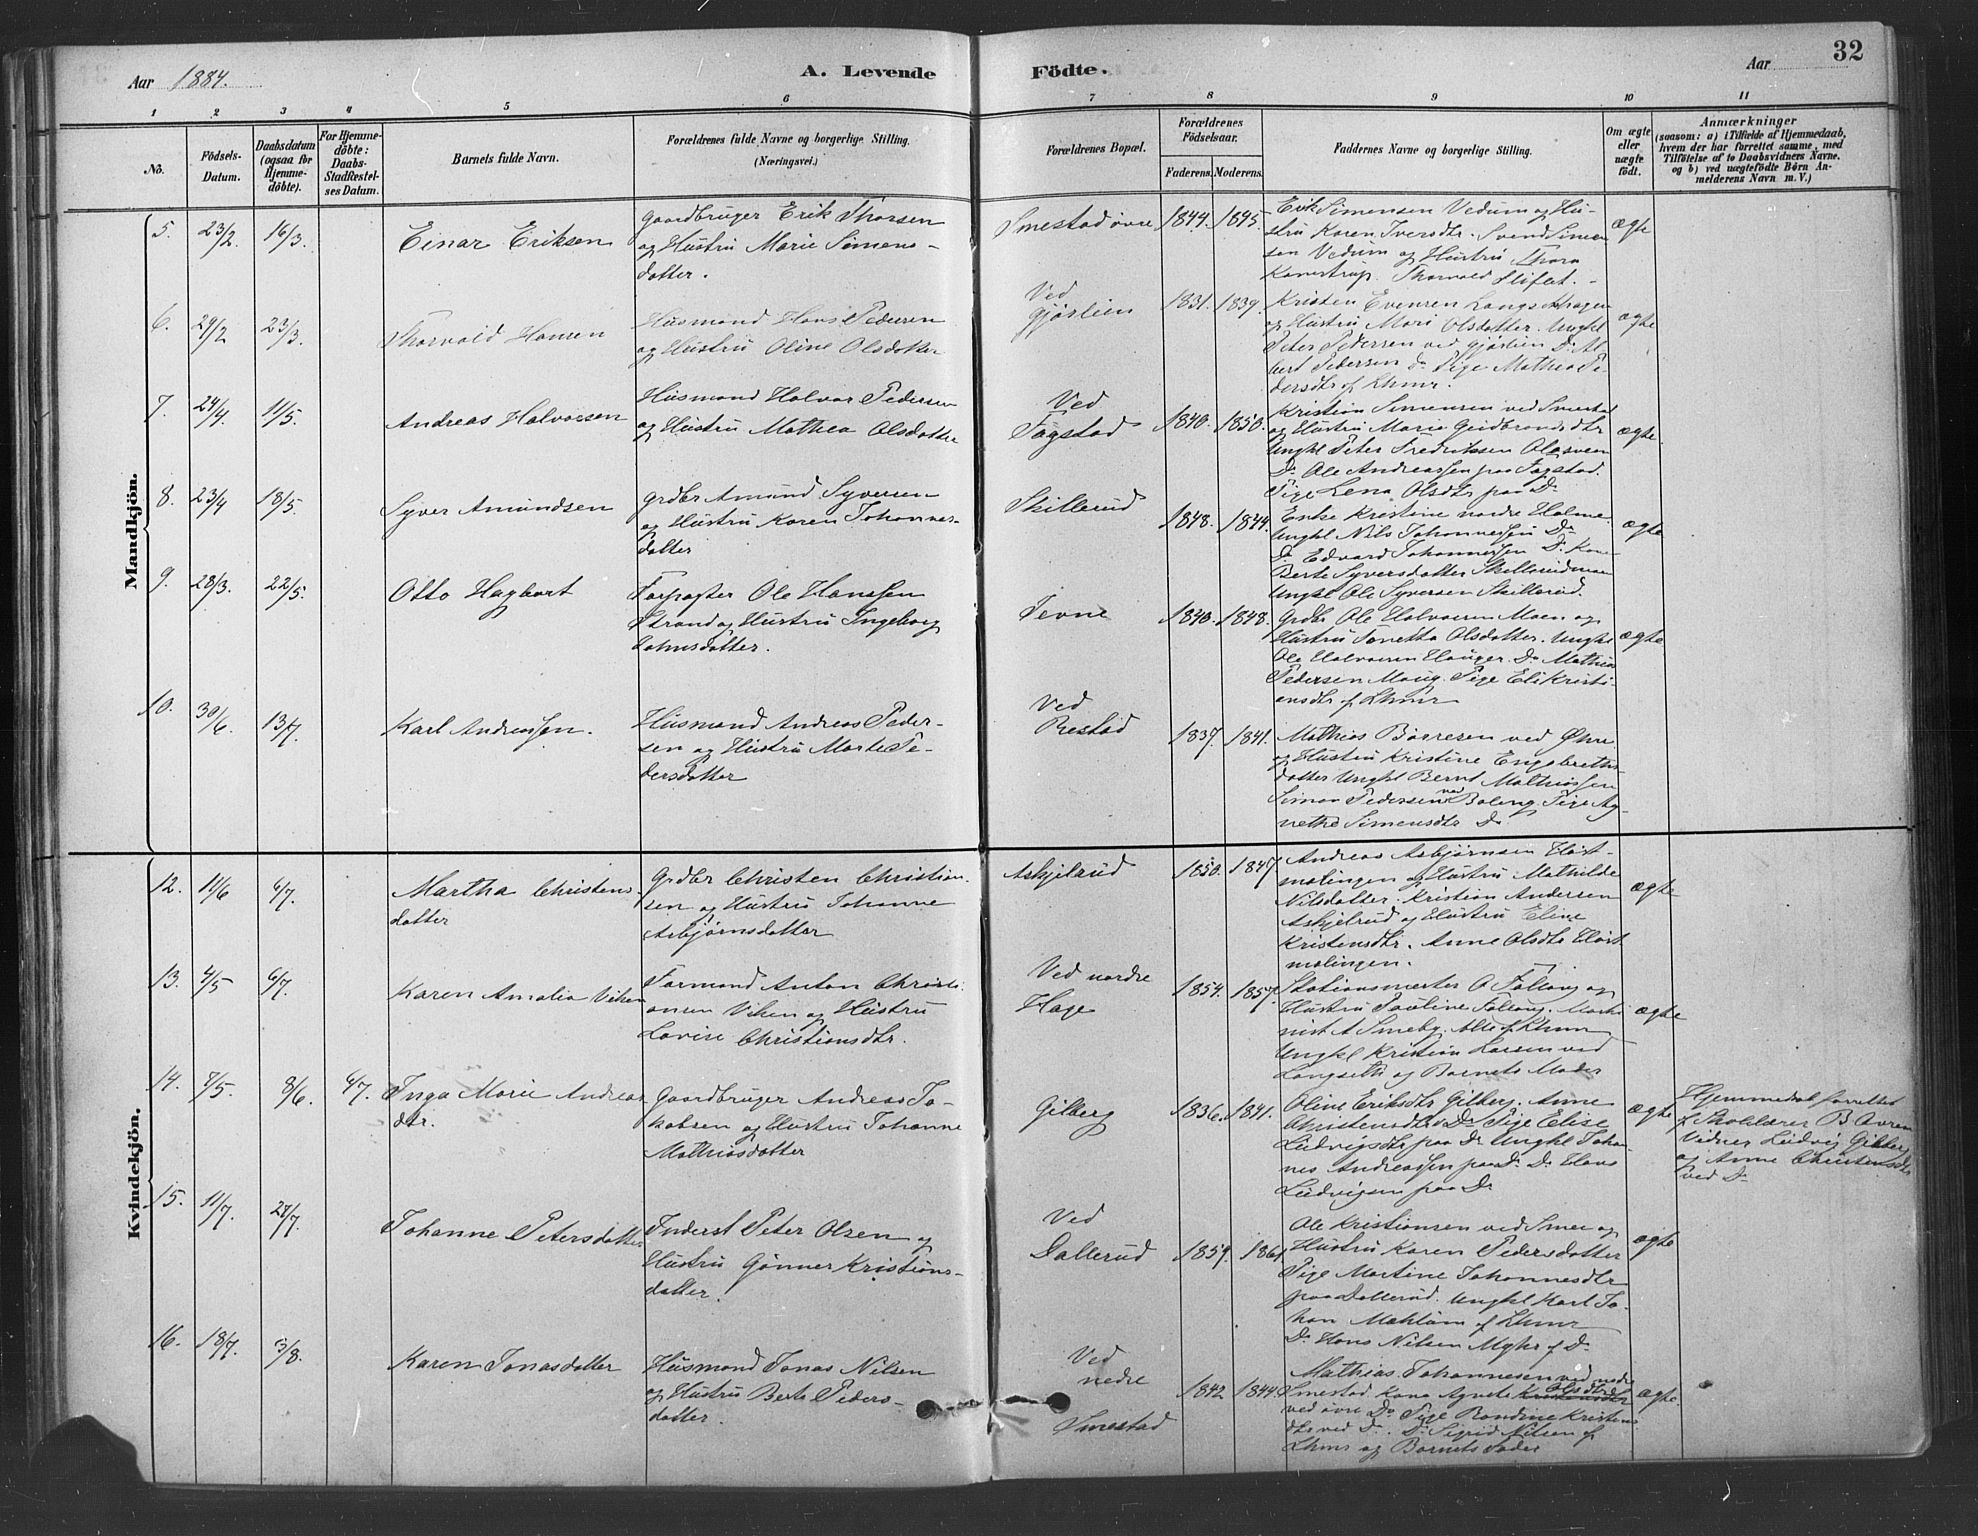 Aar 1884.
A. Levende Födte.
Aar
32
1 2 3 4 5 6 7 8 9 10 11
No.
Födsels-Datum.
Daabsdatum (ogsaa for Hjemme-döbte).
For Hjemme-döbte: Daabs-Stadfestel-ses Datum.
Barnets fulde Navn.
Forældrenes fulde Navne og borgerlige Stilling. (Næringsvei.)
Forældrenes Bopæl.
Forældrenes Födselsaar.
Faderens. Moderens.
Faddernes Navne og borgerlige Stilling.
Om ægte eller uægte födt.
Anmærkninger
(saasom: a) i Tilfælde af Hjemmedaab, hvem der har forrettet samme, med Tilföielse af to Daabsvidners Navne. og b) ved uægtefödte Börn An-melderens Navn m. V.)
Mandkjön.
5. 23/2. 16/3. Einar Eriksen
Gaardbruger Erik Thorsen
og Hustru Marie Simens-
datter.
Smestad övre 1844. 1845.
Erik Simensen Vedum og Hu-
stru Karen Iversdtr. Svend Simen
sen Vedum og Hustru Thora
Thorvald
ægte
6. 29/2 23/3. Thorvald Hansen
Husmand Hans Pedersen
og Hustru Oline Olsdatter
Ved
Gjörlien 1831. 1839.
Kristen Evensen
og Hustru Mari Olsdatter. Ungkl
Peter Pedersen ved Gjörlien Do Al
bert Pedersen Do Pige Mathea Pe
dersdtr af Lhmr.
ægte
7. 24/4 11/5. Andreas Halvorsen
Husmand Halvor Pedersen
og Hustru Mathea Olsdatter
Ved
Fagstad 1840. 1850.
Kristian Simensen ved Smestad
og Hustru Marie Gudbrandsdtr
Ungkl Peter Fredriksen
Do Ole Andreassen paa Fagstad.
Pige Lena Olsdtr paa Do
ægte
8. 23/4 18/5. Syver Amundsen
Grdbr Amund Syversen
og Hustru Karen Johannes-
datter
Skillerud 1848. 1844.
Enke Kristine nordre Holme
Ungkl Nils Johannessen Do
Do Edvard Johannessen Do Kone
Berte Syversdatter
Ungkl Ole Syversen Skillerud.
ægte
9. 28/3. 22/5. Otto Hagbart
Forpagter Ole Hanssen
Strand og Hustru Ingeborg
Johnsdatter.
Jevne 1840. 1848.
Grdbr Ole Halvorsen Moen og
Hustru Olsdatter. Ungkl
Ole Halvorsen Hauger. Do Mathias
Pedersen Maug. Pige Eli Kristi-
ensdtr af Lhmr
ægte
10. 30/6. 13/7. Karl Andreassen.
Husmand Andreas Peder-
sen og Hustru Marte Pe-
dersdatter
Ved
Restad 1837. 1841.
Mathias Börresen ved Öhre
og Hustru Kristine Engebrets-
datter Ungkl Bernt Mathiassen
Simon Pedersen ved Baleng. Pige Ag-
nethe Simensdtr Do
Kvindekjön.
12. 11/6 6/7. Martha Christens-
datter
Grdbr Christen Christian-
sen og Hustru Johanne
Asbjörnsdatter
Askjelrud 1850. 1847.
Andreas Asbjörnsen
og Hustru Mathilde
Nilsdatter. Kristian Andersen
Askjelrud og Hustru Eline
Kristensdtr. Anne Olsdtr
ægte
13. 4/5 6/7. Karen Amalia Viken
Formand Anton Christi-
ansen Viken og Hustru
Lovise Christiansdtr.
Ved nordre
Hage 1854. 1857.
Stationsmester O Fallang og
Hustru Pauline Fallang. Maski
nist A Smeby. Alle af Lhmr
Ungkl Kristian Larsen ved
Langseth og Barnets Moder
ægte
14. 7/5. 8/6. 6/7. Inga Marie Andreas
dtr.
Gaardbruger Andreas Ja-
kobsen og Hustru Johanne
Mathiasdatter
Gilberg 1836. 1841.
Oline Eriksdtr Gilberg. Anne
Christensdtr Do Pige Elise
Ludvigsdtr paa Do Ungkl Johan
nes Andreassen paa Do. Do Hans
Ludvigsen paa Do
ægte
Hjemmedaab forrettet
af Skolelærer B
Vidner Ludvig Gilberg
og Anne Christensdtr
ved Do
15. 11/7. 27/7. Johanne Petersdatter
Inderst Peter Olsen og
Hustru Gönner Kristians-
datter.
Ved
Dallerud 1859. 1861
Ole Kristiansen ved Smee og
Hustru Karen Pedersdatter
Pige Martine Johannesdtr
paa Dallerud. Ungkl Karl Jo-
han af Lhmr
Do Hans Nilsen af Do
ægte
16. 18/7. 3/8. Karen Jonasdatter
Husmand Jonas Nilsen
og Hustru Berte Peders-
datter.
Ved
nedre
Smestad 1842 1844
Mathias Johannesen ved nedre
Smestad. Kone Agnete Olsdtr
ved övre Do Pige Randine Kristens
dtr ved Do. Do Sigrid Nilsen af
Lhmr og Barnets Fader
ægte.